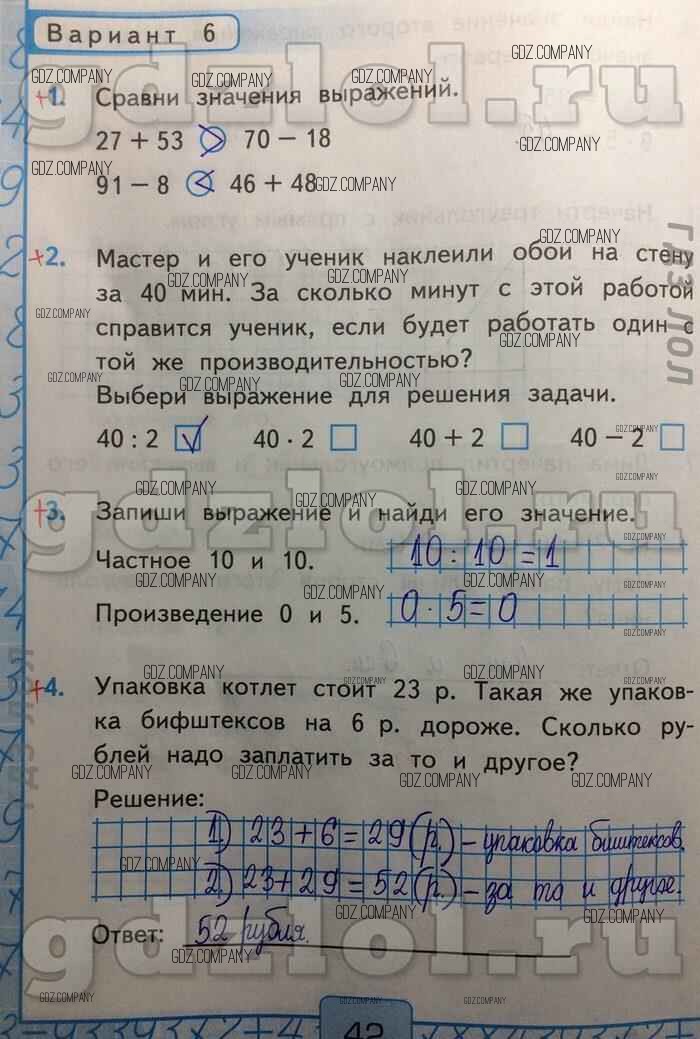 Вариант 6
+1. Сравни значения выражений.
27 + 53 > 70 – 18
91 – 8 < 46 + 48
+2. Мастер и его ученик наклеили обои на стену
за 40 мин. За сколько минут с этой работой
справится ученик, если будет работать один с
той же производительностью?
Выбери выражение для решения задачи.
40 : 2 ✓ 40 · 2 40 + 2 40 – 2
+3. Запиши выражение и найди его значение.
Частное 10 и 10. 10 : 10 = 1
Произведение 0 и 5. 0 · 5 = 0
+4. Упаковка котлет стоит 23 р. Такая же упаков-
ка бифштексов на 6 р. дороже. Сколько ру-
блей надо заплатить за то и другое?
Решение:
1) 23 + 6 = 29 (р.) – упаковка биштексов.
2) 23 + 29 = 52 (р.) – за то и другое.
Ответ: 52 рубля.
42
gdzlol.ru
GDZ.COMPANY
ГДЗ ЛОЛ